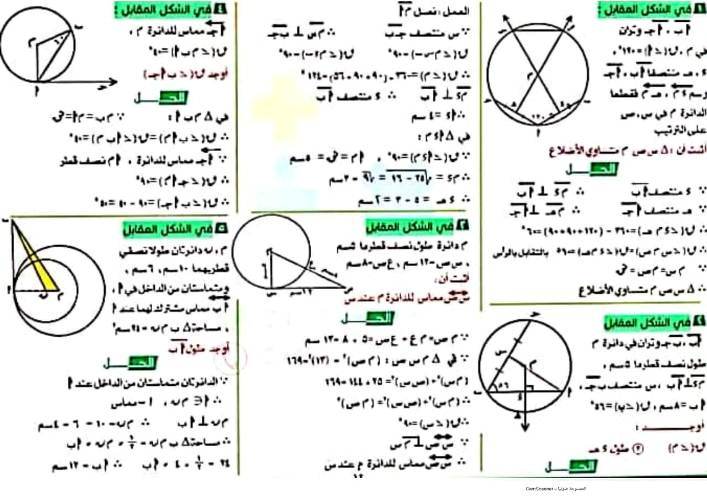 في الشكل المقابل :
أ ب ، أ جـ وتران
في م ، ق(∠أ) = ١٢٠° ،
ء ، هـ منتصفا أ ب ، أ جـ
رسم ء م ، هـ م فقطعا
الدائرة م في س ، ص
على الترتيب
أثبت أن : ∆ س ص م متساوي الأضلاع
الحــل
∵ ء منتصف أ ب ∴ م ء ⊥ أ ب
∵ هـ منتصف أ جـ ∴ م هـ ⊥ أ جـ
∴ ق(∠ء م هـ) = ٣٦٠ - (١٢٠+٩٠+٩٠) = ٦٠°
∴ ق(∠س م ص) = ق(∠ء م هـ) = ٦٠° بالتقابل بالرأس
∵ م س = م ص = نق
∴ ∆ س ص م متساوي الأضلاع
في الشكل المقابل
أ ب ، ب جـ وتران في دائرة م
طول نصف قطرها ٥ سم ،
م ء ⊥ أ ب ، س منتصف ب جـ ،
أ ب = ٨ سم ، ق(∠ب) = ٥٦°
أوجــد :
ق(∠م) ② طول ء هـ
الحــل
العمل : نصل م أ
∵ س منتصف جـ ب ∴ م س ⊥ ب جـ
ق(∠م س ب) = ٩٠° ق(∠م ء ب) = ٩٠°
∴ ق(∠م) = ٣٦٠ - (٥٦+٩٠+٩٠) = ١٢٤°
م ء ⊥ أ ب ∴ ء منتصف أ ب
∴ أ ء = ٤ سم
في ∆ أ ء م :
∵ ق(∠أ ء م) = ٩٠° ، أ م = نق = ٥ سم
∴ م ء = √٢٥ - ١٦ = √٩ = ٣ سم
∴ ء هـ = ٥ - ٣ = ٢ سم
في الشكل المقابل
م دائرة طول نصف قطرها ٥ سم
، س ص = ١٢ سم ، ع س = ٨ سم
أثبت أن :
س ص مماس للدائرة م عند ص
الحــل
∵ م س = م ع + ع س = ٥ + ٨ = ١٣ سم
∵ في ∆ م ص س : (م س)² = (١٣)² = ١٦٩
(م ص)² + (س ص)² = ٢٥ + ١٤٤ = ١٦٩
∴ (م س)² = (س ص)² + (م ص)²
∴ ق(∠ص) = ٩٠°
∴ س ص ⊥ م ص
∴ س ص مماس للدائرة م عند ص
في الشكل المقابل :
أ جـ مماس للدائرة م ،
ق(∠م ب أ) = ٤٠°
أوجد ق(∠ب أ جـ)
الحــل
في ∆ م ب أ : ∵ م ب = م أ = نق
∴ ق(∠ب أ م) = ق(∠أ ب م) = ٤٠°
∵ أ جـ مماس للدائرة ، أ م نصف قطر
∴ ق(∠جـ أ م) = ٩٠°
∴ ق(∠ب أ جـ) = ٩٠ - ٤٠ = ٥٠°
في الشكل المقابل
م ، ن دائرتان طولا نصفي
قطريهما ١٠ سم ، ٦ سم ،
ومتماستان من الداخل في أ ،
أ ب مماس مشترك لهما عند أ
، مساحة ∆ ب م ن = ٢٤ سم²
أوجد طول أ ب
الحــل
∵ الدائرتان متماستان من الداخل عند أ
م ن = ١٠ - ٦ = ٤ سم